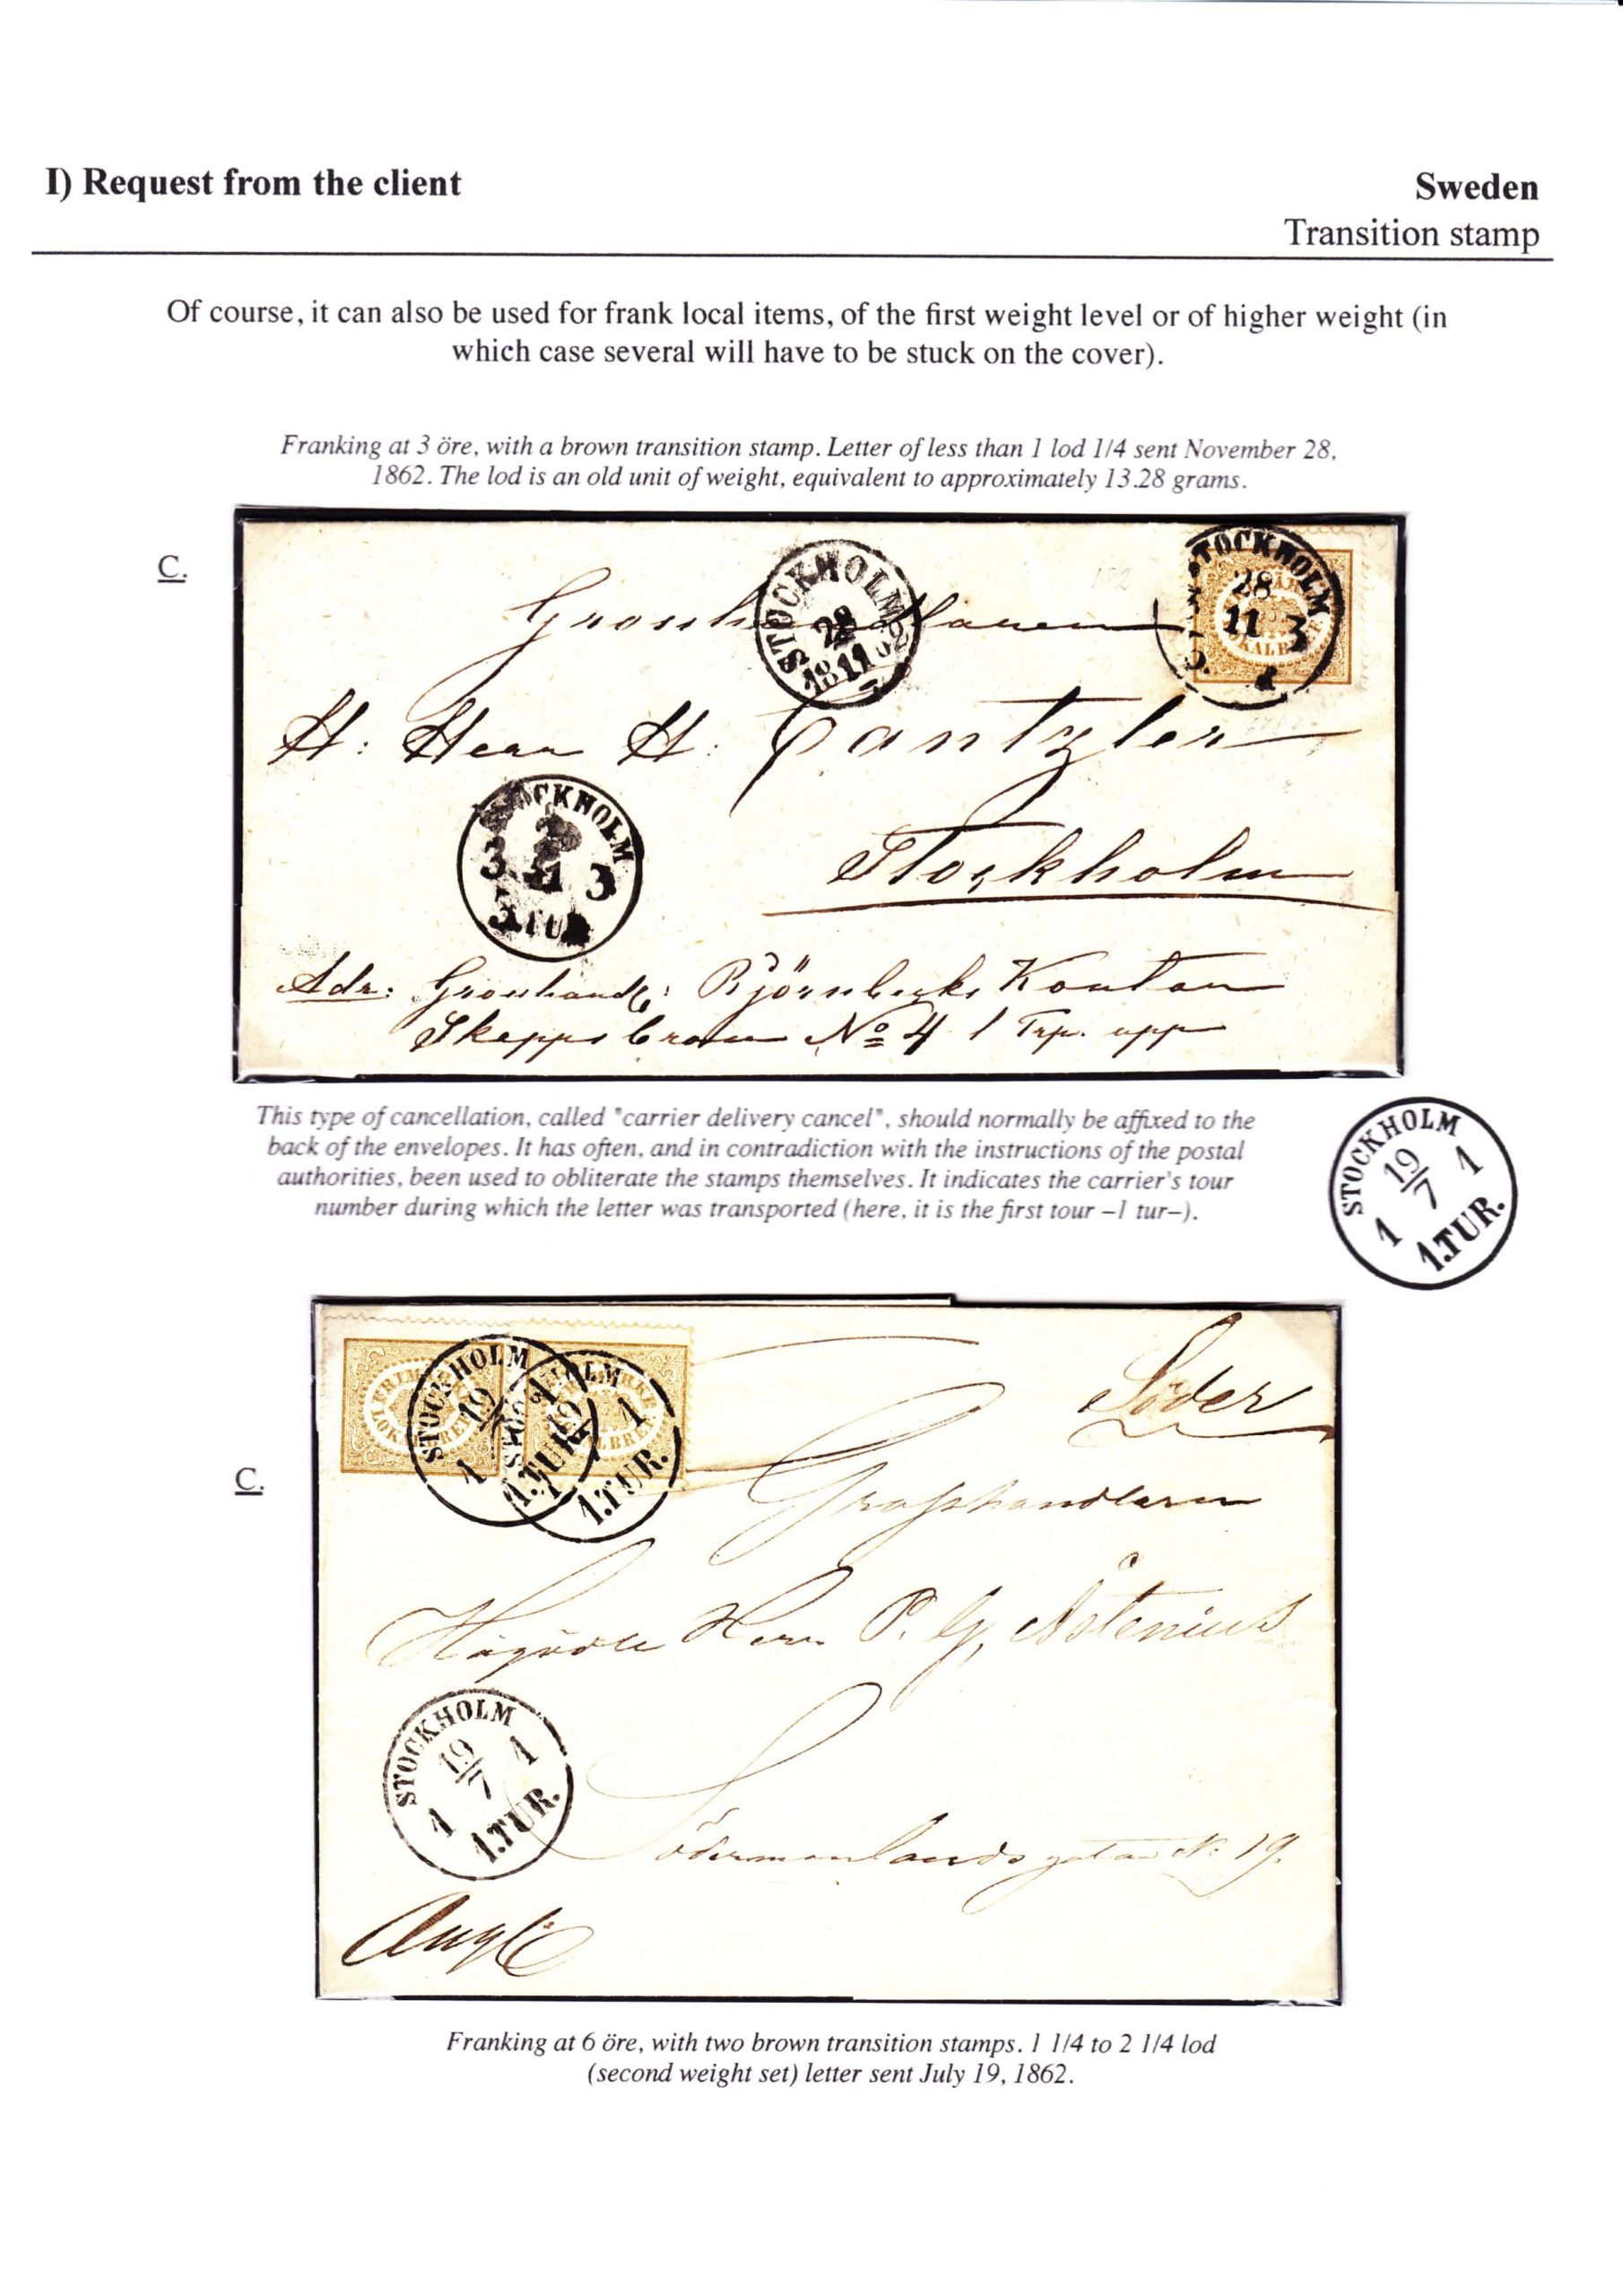 I) Request from the client
Sweden
Transition stamp
Of course, it can also be used for frank local items, of the first weight level or of higher weight (in
which case several will have to be stuck on the cover).
Franking at 3 öre, with a brown transition stamp. Letter of less than 1 lod 1/4 sent November 28,
1862. The lod is an old unit of weight, equivalent to approximately 13.28 grams.
C.
STOCKHOLM
28
11
1862
STOCKHOLM
28
11 3
H: Herr H:
Stockholm
STOCKHOLM
3 3
TUR
Adr: Kontor
No 4 1 Trp. upp
This type of cancellation, called "carrier delivery cancel", should normally be affixed to the
back of the envelopes. It has often, and in contradiction with the instructions of the postal
authorities, been used to obliterate the stamps themselves. It indicates the carrier's tour
number during which the letter was transported (here, it is the first tour –1 tur–).
STOCKHOLM
19
7
1 1
1.TUR.
C.
STOCKHOLM
19
1
1.TUR.
1
1.TUR.
Söder
Grosshandlaren
Herr P. G. Åstenius
STOCKHOLM
19
7
1 1
1.TUR.
Södermanlandsgatan N: 19.
Franking at 6 öre, with two brown transition stamps. 1 1/4 to 2 1/4 lod
(second weight set) letter sent July 19, 1862.